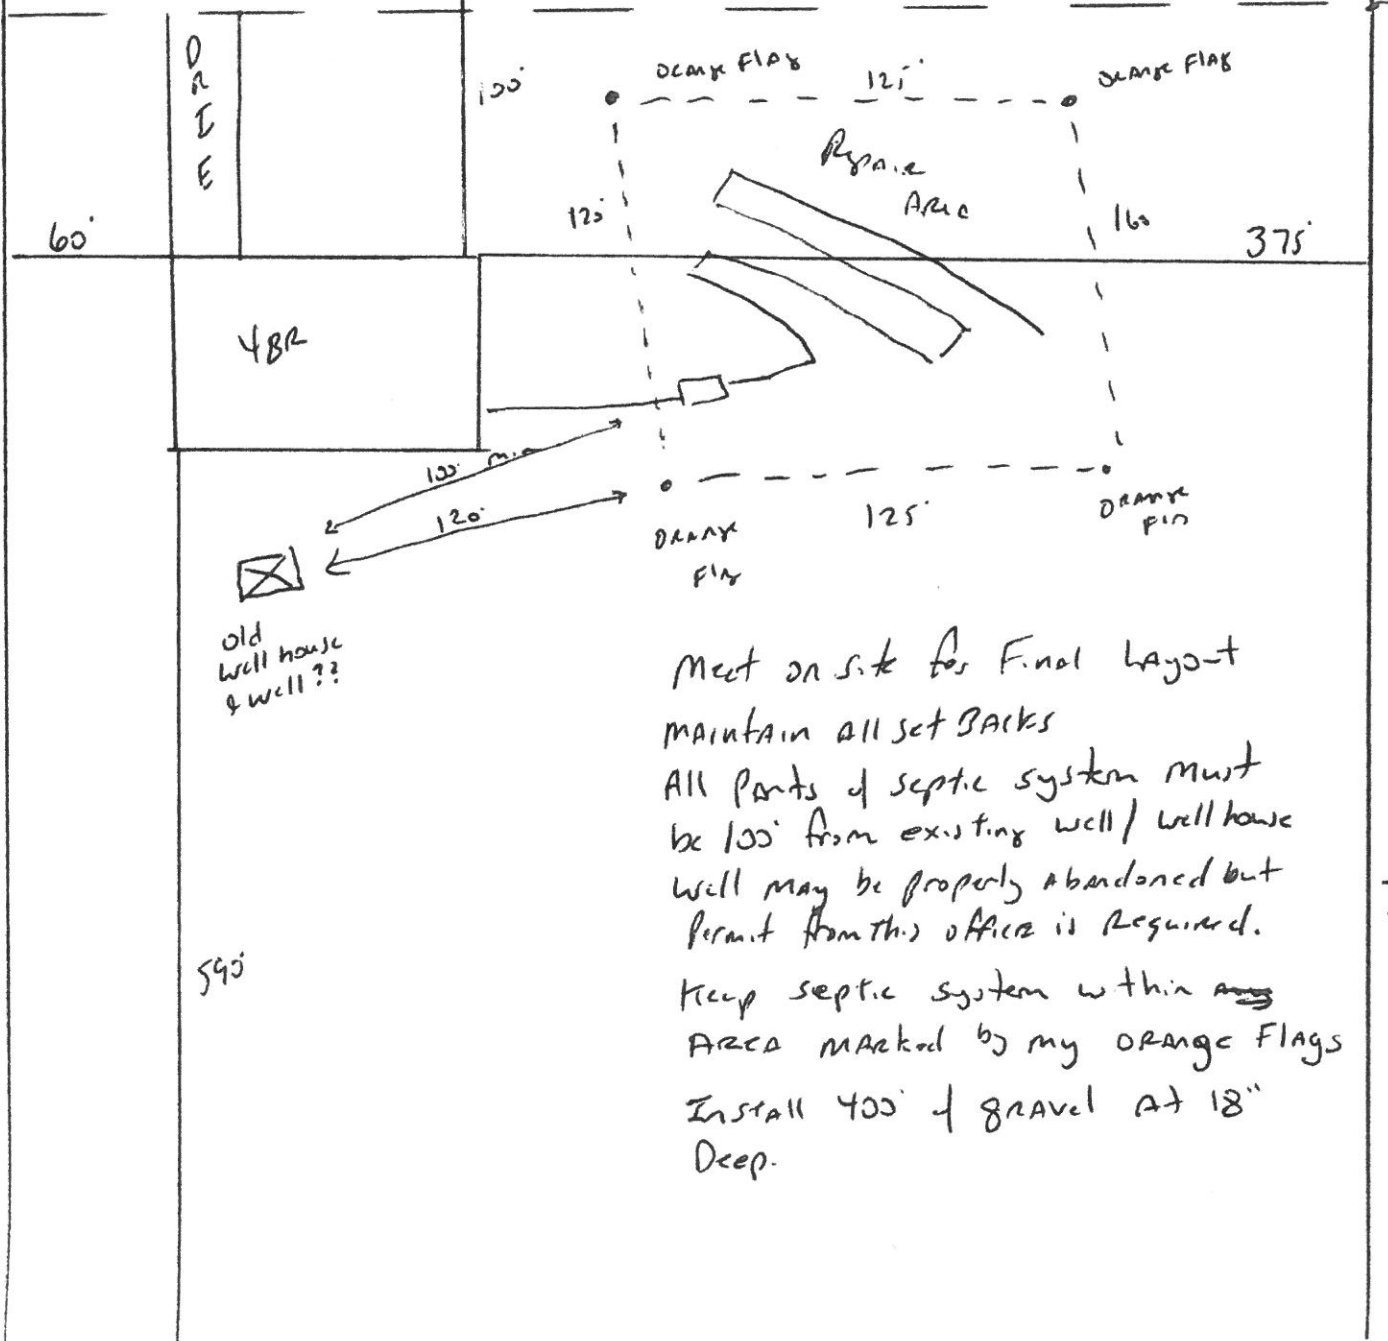 DRIE
100'
Orange Flag
125'
Orange Flag
Repair
Area
120'
160
60'
375'
4BR
100' min
120'
125'
Orange
Flg
Orange
old
well house
& well??
Meet on site for Final Layout
Maintain All set Backs
All Parts of septic system must
be 100' from existing well/wellhouse
well may be properly Abandoned but
Permit from this office is Required.
Keep septic system within
AREA marked by my orange Flags
590'
Install 400' of gravel At 18"
Deep.